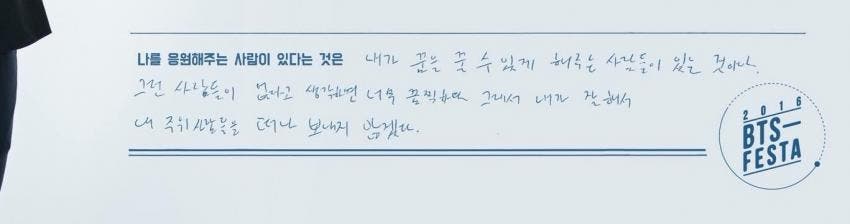 나를 응원해주는 사람이 있다는 것은 내가 꿈을 꿀 수 있게 해주는 사람들이 있는 것이다.
그런 사람들이 없다고 생각하면 너무 끔찍하다 그래서 내가 잘해서
내 주위 사람들을 떠나 보내지 않겠다.
2016
BTS—
FESTA